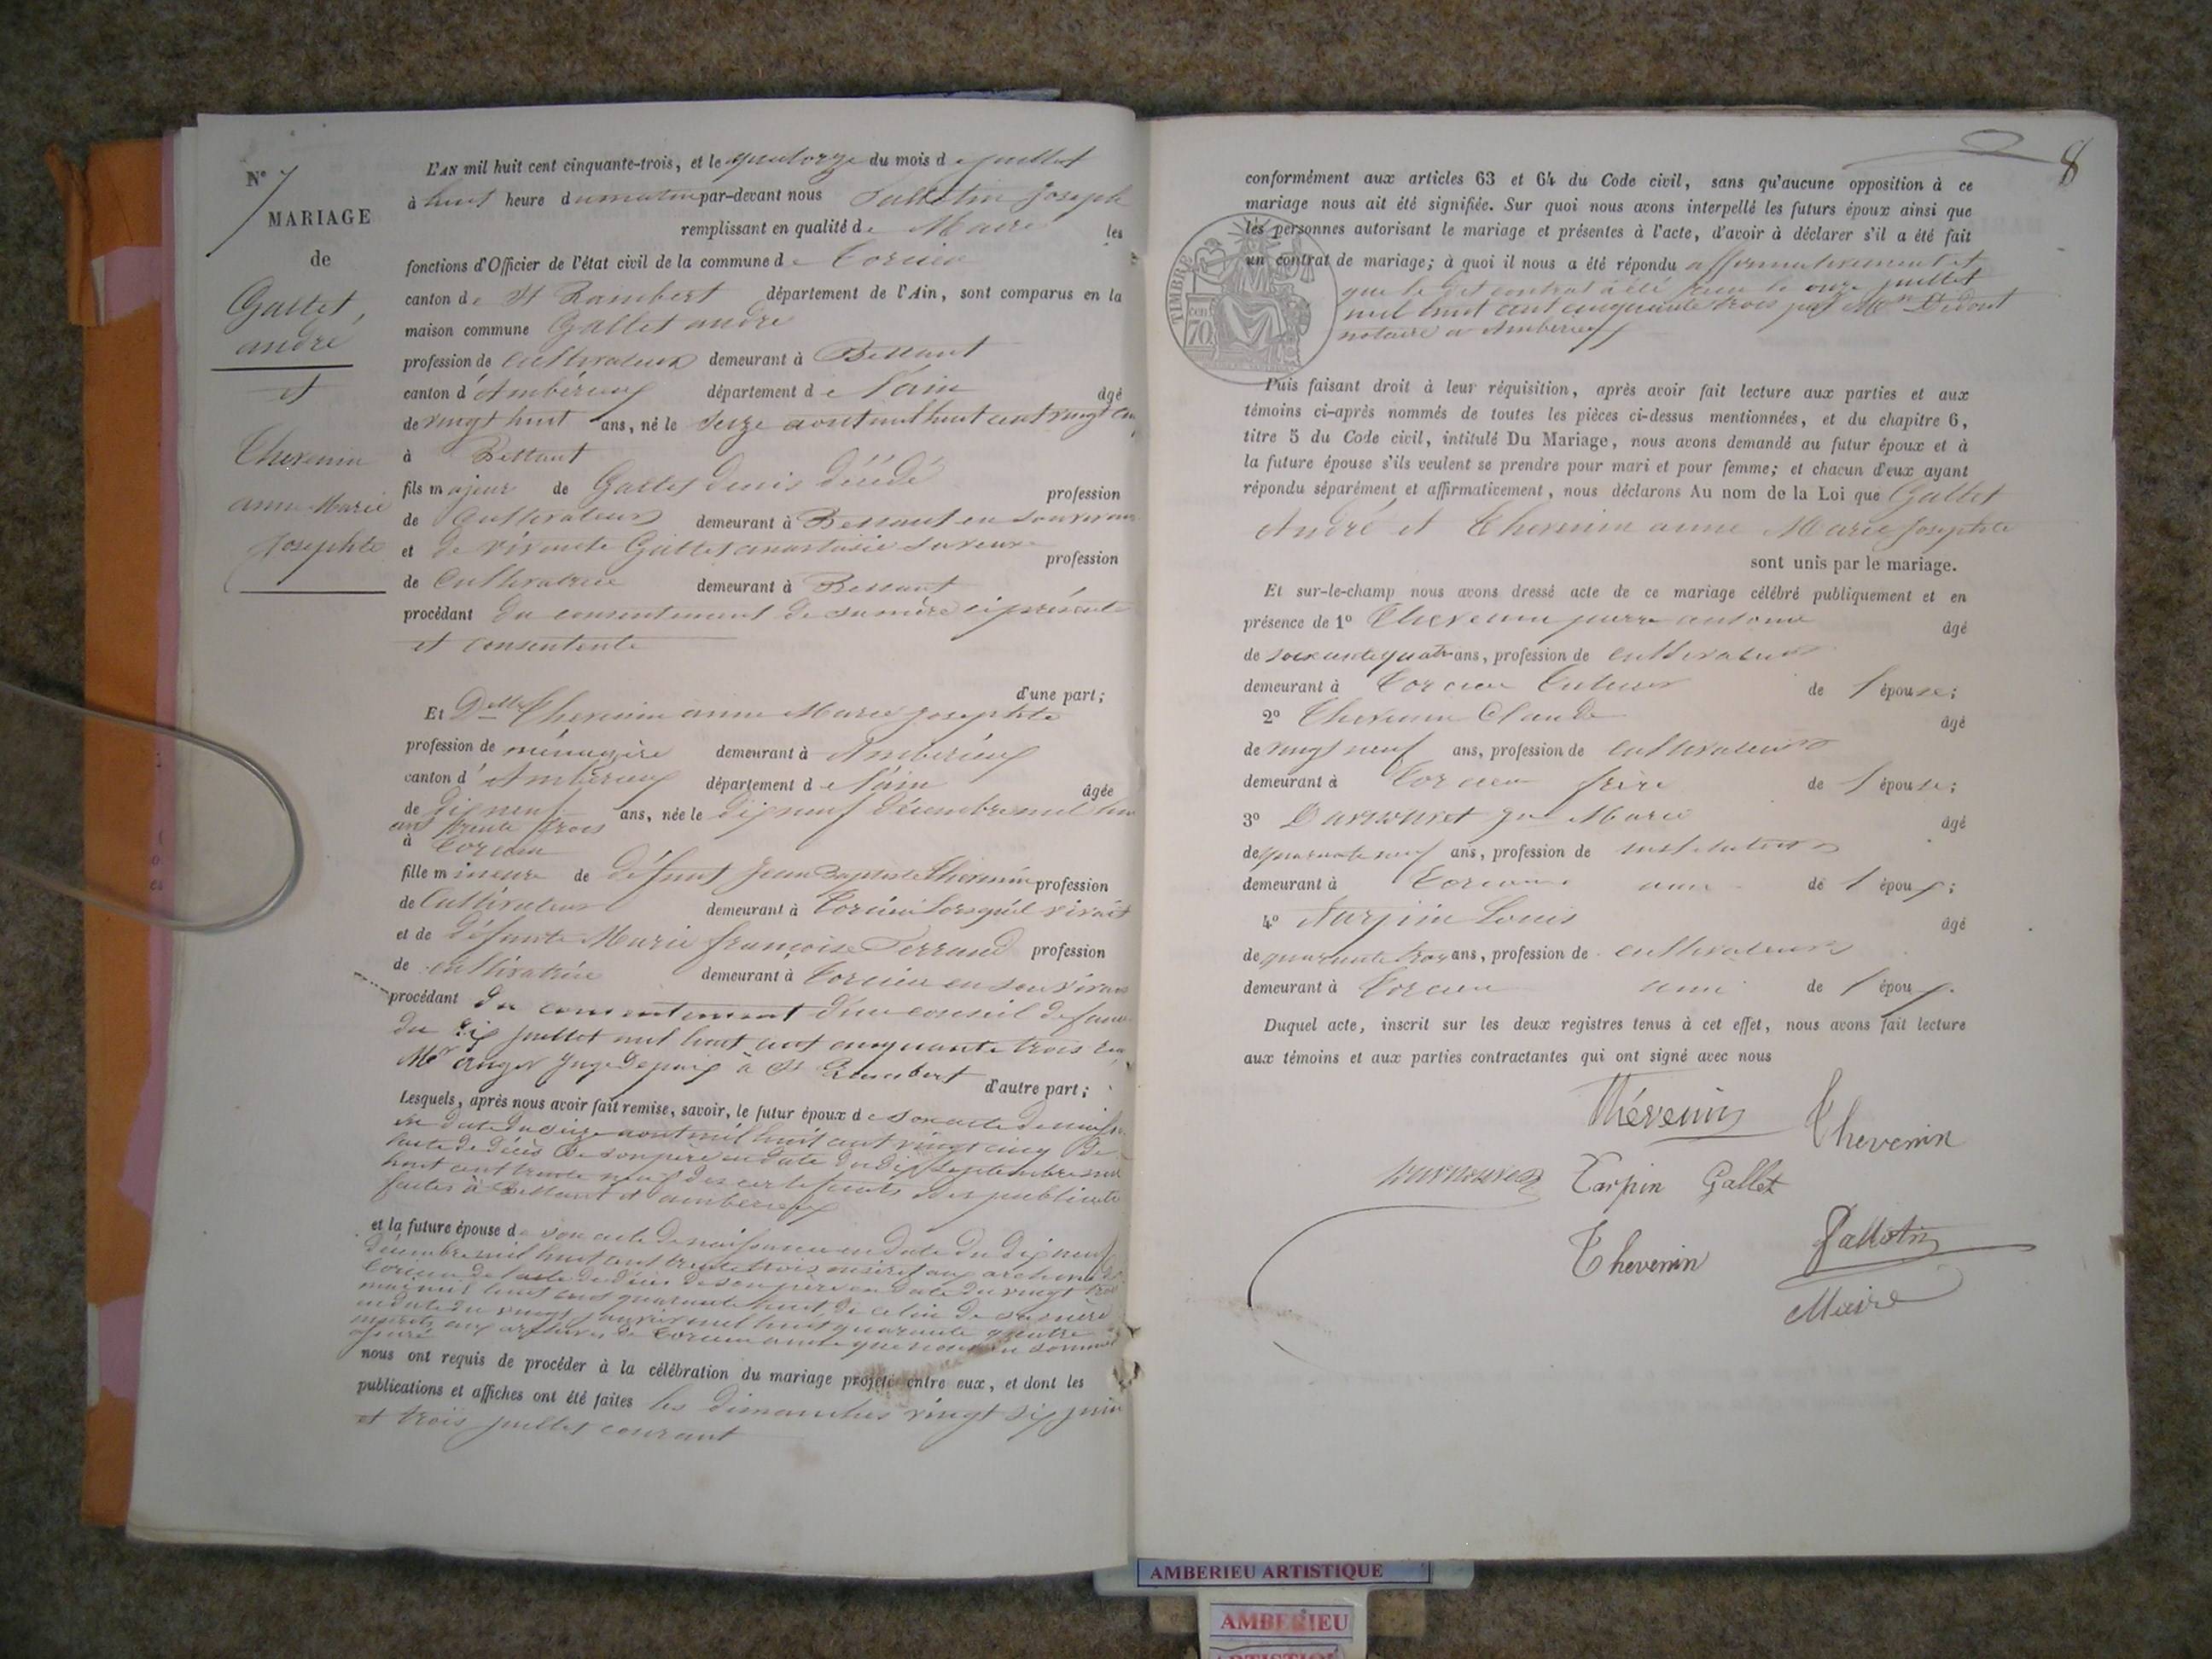 N° 7
MARIAGE
de
Gallet,
andré
et
Thevenin
anne Marie
Josephte
L'AN mil huit cent cinquante-trois, et le quatorze du mois de juillet
à huit heure du matin par-devant nous Pallotin Joseph
remplissant en qualité de Maire les
fonctions d'Officier de l'état civil de la commune de Torcieu
canton de St Rambert département de l'Ain, sont comparus en la
maison commune Gallet andré
profession de cultivateur demeurant à Bettant
canton d'Ambérieux département de l'ain âgé
de vingt huit ans, né le seize aout mil huit cent vingt cinq
à Bettant
fils majeur de Gallet Denis décédé
profession
de Cultivateur demeurant à Bettant en son vivant
et de vivante Gallet anastasie sa veuve
profession
de Cultivatrice demeurant à Bettant
procédant du consentement de sa mère ici présente
et consentente
d'une part;
Et Delle Thevenin anne Marie Josephte
profession de ménagère demeurant à Ambérieux
canton d'Ambérieux département de l'ain âgée
de dix neuf ans, née le dix neuf décembre mil huit
cent trente trois
à Torcieu
fille mineure de défunt Jean Baptiste Thevenin profession
de Cultivateur demeurant à Torcieu lorsqu'il vivait
et de défunte Marie françoise Ferrand profession
de cultivatrice demeurant à Torcieu en son vivant
procédant du consentement d'un conseil de famille
du dix juillet mil huit cent cinquante trois
Mr auger Juge de paix à St Rambert d'autre part;
Lesquels, après nous avoir fait remise, savoir, le futur époux de son acte de naissance
en date du seize aout mil huit cent vingt cinq De
l'acte de décès de son père en date du dix septembre mil
huit cent trente neuf des certificats des publications
faites à Bettant et ambérieux
et la future épouse de son acte de naissance en date du dix neuf
décembre mil huit cent trente trois inscrit aux archives de
Torcieu de l'acte de décès de son père en date du vingt trois
mai mil huit cent quarante huit, de celui de sa mère
en date du vingt janvier mil huit quarante quatre
inscrits aux archives de Torcieu ainsi que nous nous en sommes
assuré
nous ont requis de procéder à la célébration du mariage projeté entre eux, et dont les
publications et affiches ont été faites les dimanches vingt six juin
et trois juillet courant
8
conformément aux articles 63 et 64 du Code civil, sans qu'aucune opposition à ce
mariage nous ait été signifiée. Sur quoi nous avons interpellé les futurs époux ainsi que
les personnes autorisant le mariage et présentes à l'acte, d'avoir à déclarer s'il a été fait
un contrat de mariage; à quoi il nous a été répondu affirmativement et
que le dit contrat a été passé le onze juillet
mil huit cent cinquante trois par Me Didout
notaire a Ambérieux
TIMBRE
70
Puis faisant droit à leur réquisition, après avoir fait lecture aux parties et aux
témoins ci-après nommés de toutes les pièces ci-dessus mentionnées, et du chapitre 6,
titre 5 du Code civil, intitulé Du Mariage, nous avons demandé au futur époux et à
la future épouse s'ils veulent se prendre pour mari et pour femme; et chacun d'eux ayant
répondu séparément et affirmativement, nous déclarons Au nom de la Loi que Gallet
André et Thevenin anne Marie Josephte
sont unis par le mariage.
Et sur-le-champ nous avons dressé acte de ce mariage célébré publiquement et en
présence de 1° Thevenin pierre antoine âgé
de soixante quatre ans, profession de cultivateur
demeurant à Torcieu tuteur de l'épouse;
2° Thevenin Claude âgé
de vingt neuf ans, profession de cultivateur
demeurant à Torcieu frère de l'épouse;
3° Marie âgé
de quarante neuf ans, profession de instituteur
demeurant à Torcieu ami de l'époux;
4° Tarpin Louis âgé
de quarante trois ans, profession de cultivateur
demeurant à Torcieu ami de l'époux.
Duquel acte, inscrit sur les deux registres tenus à cet effet, nous avons fait lecture
aux témoins et aux parties contractantes qui ont signé avec nous
Thévenin Thevenin
Tarpin Gallet
Thevenin Pallotin
Maire
AMBERIEU ARTISTIQUE
AMBERIEU
ARTISTIQUE